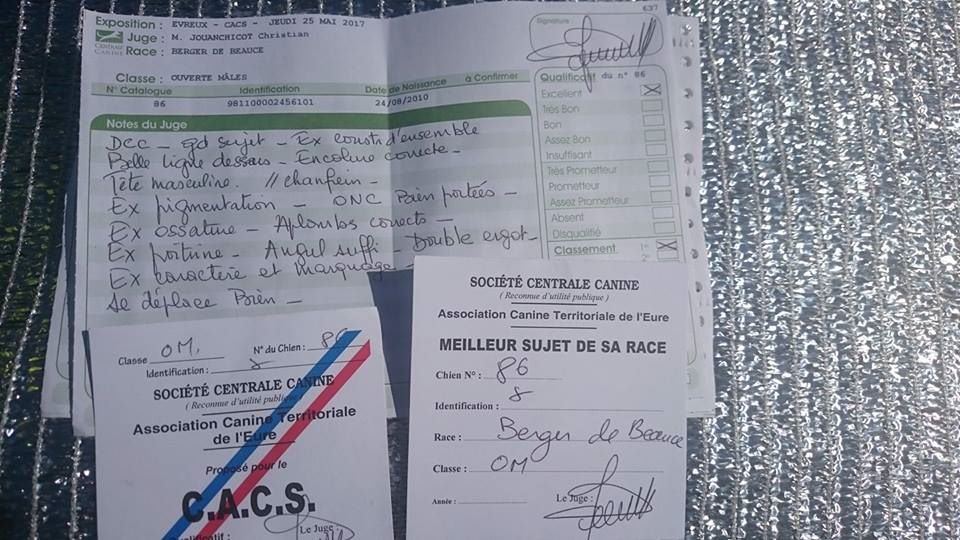 637
Exposition : EVREUX - CACS - JEUDI 25 MAI 2017
Juge : M. JOUANCHICOT Christian
Race : BERGER DE BEAUCE
CENTRALE CANINE
Signature
Classe : OUVERTE MÂLES
à Confirmer
N° Catalogue Identification Date de Naissance
86 981100002456101 24/08/2010
Qualificatif du n° 86
Excellent
Très Bon
Bon
Assez Bon
Insuffisant
Très Prometteur
Prometteur
Assez Prometteur
Absent
Disqualifié
Classement 1er
2e
Notes du Juge
DCC - gd sujet - Ex const d'ensemble
Belle ligne dessus - Encolure correcte -
Tête masculine. // chanfrein -
Ex pigmentation - ONC Bien portées -
Ex ossature - Aplombs corrects -
Ex poitrine - Angul suffi - Double ergot -
Ex caractère et marquage -
Se déplace Bien -
Classe OM. N° du Chien : 86
Identification : 8
SOCIÉTÉ CENTRALE CANINE
( Reconnue d'utilité publique )
Association Canine Territoriale
de l'Eure
Proposé pour le
C.A.C.S.
Le Juge :
SOCIÉTÉ CENTRALE CANINE
( Reconnue d'utilité publique )
Association Canine Territoriale de l'Eure
MEILLEUR SUJET DE SA RACE
Chien N° : 86
Identification : 8
Race : Berger de Beauce
Classe : OM
Année : Le Juge :